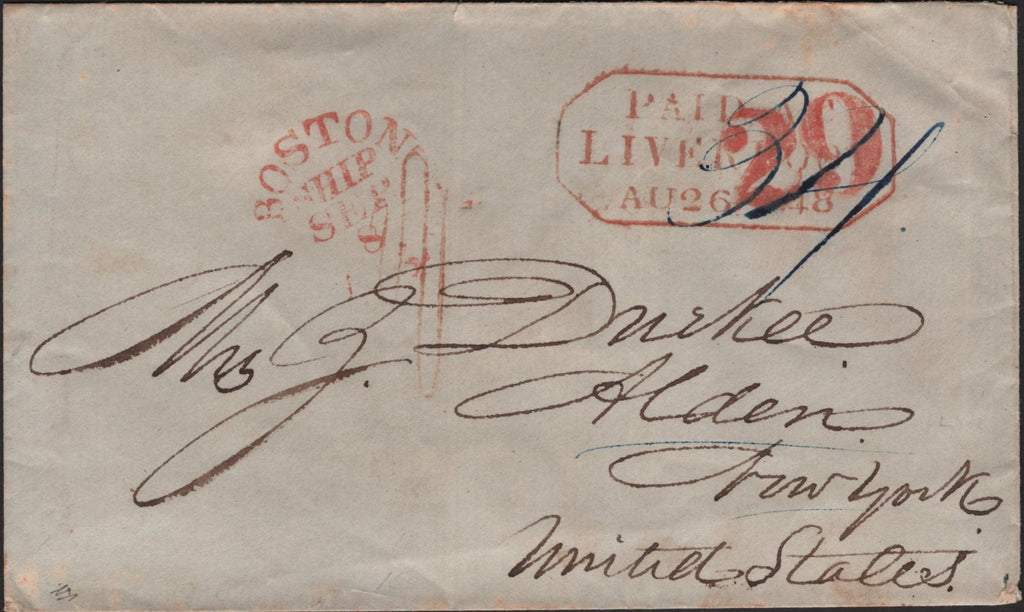 BOSTON
SHIP
SEP
8
PAID AT
LIVERPOOL
AU 26 1848
29
Mrs J. Durkee
Alden
New York
United States.